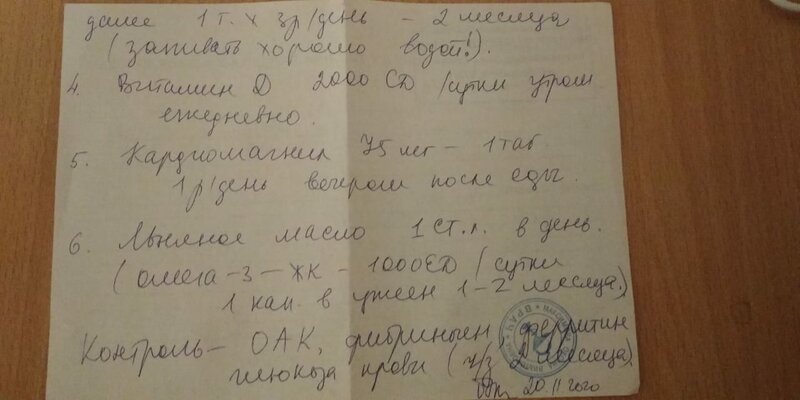 далее 1 т. х 3 р/день – 2 месяца
(запивать хорошо водой!).
4. Витамин D 2000 ЕD /сутки утром
ежедневно.
5. Кардиомагнил 75 мг – 1 таб
1 р/день вечером после еды.
6. Льняное масло 1 ст. л. в день.
(омега-3-ЖК – 1000ЕD /сутки
1 кап. в ужин 1-2 месяца.)
Контроль – ОАК, фибриноген, ферритин
глюкоза крови (ч/з 2 месяца)
20.11.2020
ВРАЧ